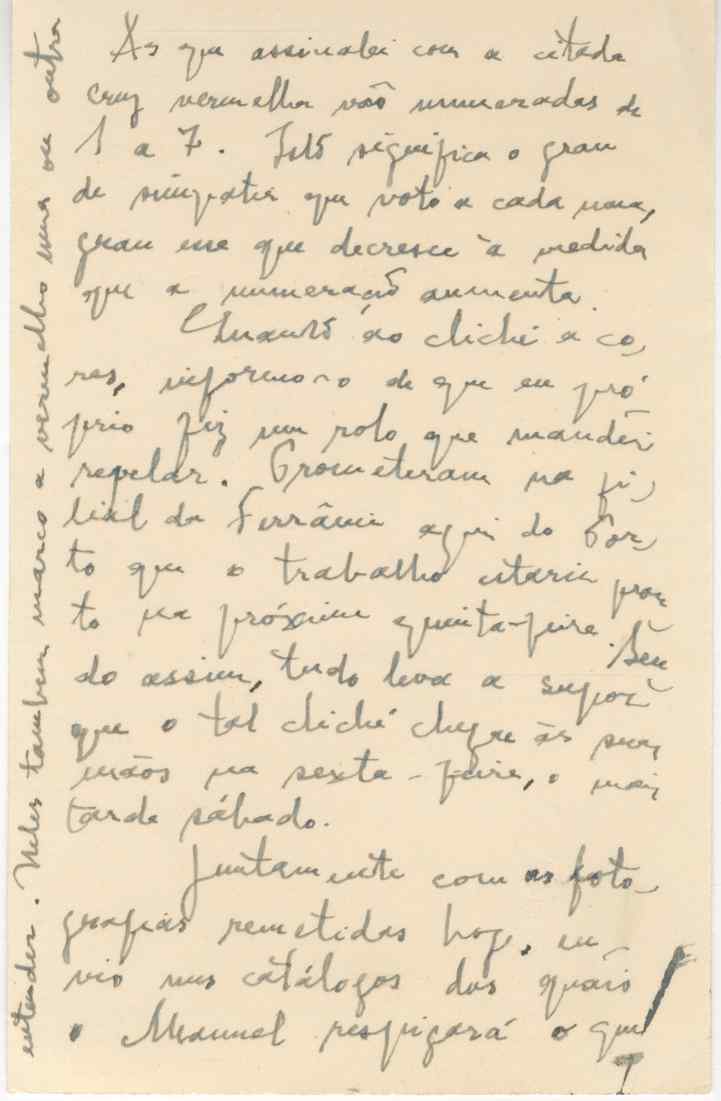 As que assinalei com a citada
cruz vermelha vão numeradas de
1 a 7. Istó significa o grau
de simpatia que voto a cada uma,
grau esse que decresce à medida
que a numeração aumenta.
Quantó ao cliché a co-
res, informo-o de que eu pró-
prio fiz um rolo que mandei
revelar. Prometeram na fi-
lial da Ferrânia aqui do Por-
to que o trabalho estaria pron
to na próxima quinta-feira. Sen
do assim, tudo leva a supor
que o tal cliché chegue às suas
mãos na sexta-feira, o mais
tarde sábado.
Juntamente com as foto-
grafias remetidas hoje, en-
vio uns catálogos dos quais
o Manuel respigará o que
entender. Neles também marco a vermelho uma ou outra